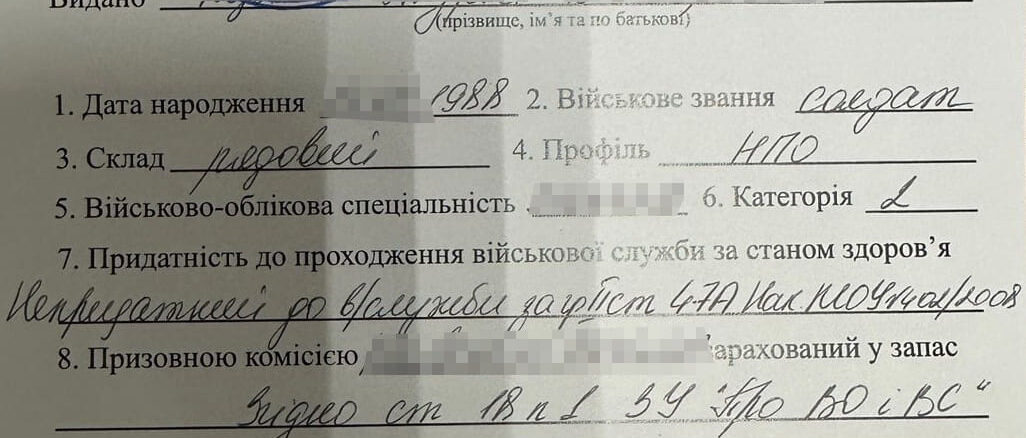 Видано
(прізвище, ім’я та по батькові)
1. Дата народження 1988 2. Військове звання солдат
3. Склад рядовий 4. Профіль НПО
5. Військово-облікова спеціальність 6. Категорія 2
7. Придатність до проходження військової служби за станом здоров’я
Непридатний до в/служби за гр II ст 47А Нак. МОУ №402/2008
8. Призовною комісією зарахований у запас
Згідно ст 18 п 1 ЗУ "Про ВО і ВС"